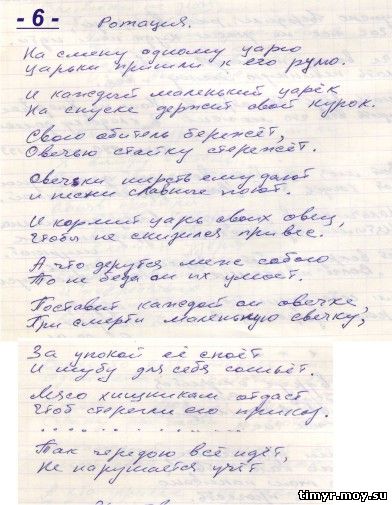 - 6 -
Ротация.
На смену одному царю
Царьки пришли к его рулю.
И каждый маленький царёк
На спуске держит свой курок.
Свою обитель бережёт,
Овечью стайку стережёт.
Овечки шерсть ему дают
и песни славные поют.
И кормит царь своих овец,
Чтобы не снизился привес.
А что дерутся меж собою
То не беда он их умоет.
Поставит каждой он овечке,
При смерти маленькую свечку,
За упокой её споёт
И шубу для себя сошьёт.
Мясо хищникам отдаст
Чтоб стерегли его приказ.
. . . . . . . . . . . . . .
Так чередою всё идёт,
Не нарушается учёт
timyr.moy.su